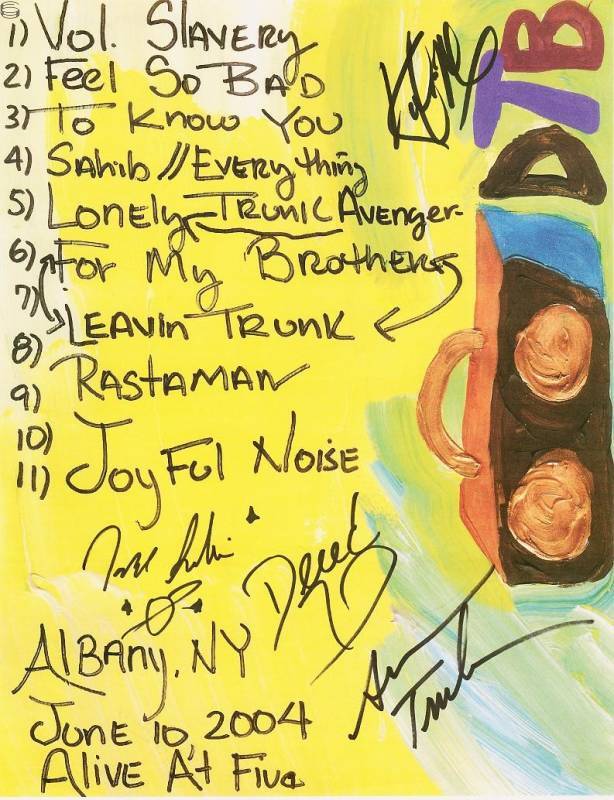 1) Vol. Slavery
2) Feel So Bad
3) To Know You
4) Sahib // Everything
5) Lonely Trunk Avenger
6) For My Brothers
7)
LEAVIN TRUNK
8)
RASTAMAN
9)
10)
11) Joyful Noise
Derek
Albany, NY
June 10, 2004
Alive At Five
DTB